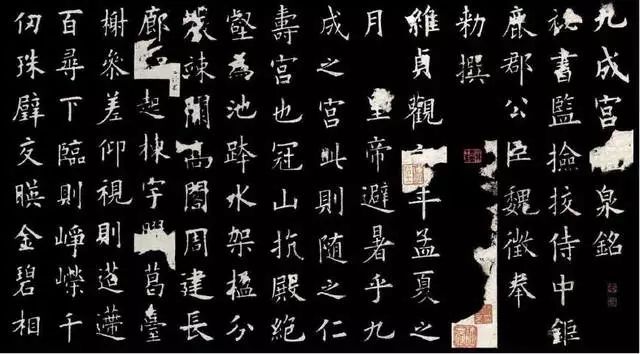 九成宮泉銘
秘書監撿挍侍中鉅
鹿郡公臣魏徵奉
勅撰
維貞觀年孟夏之
月皇帝避暑乎九
成之宮此則隨之仁
壽宮也冠山抗殿絕
壑為池跨水架楹分
巖竦闕高閣周建長
廊起棟宇葛臺
榭叅差仰視則迢遰
百尋下臨則崢嶸千
仞珠璧交暎金碧相